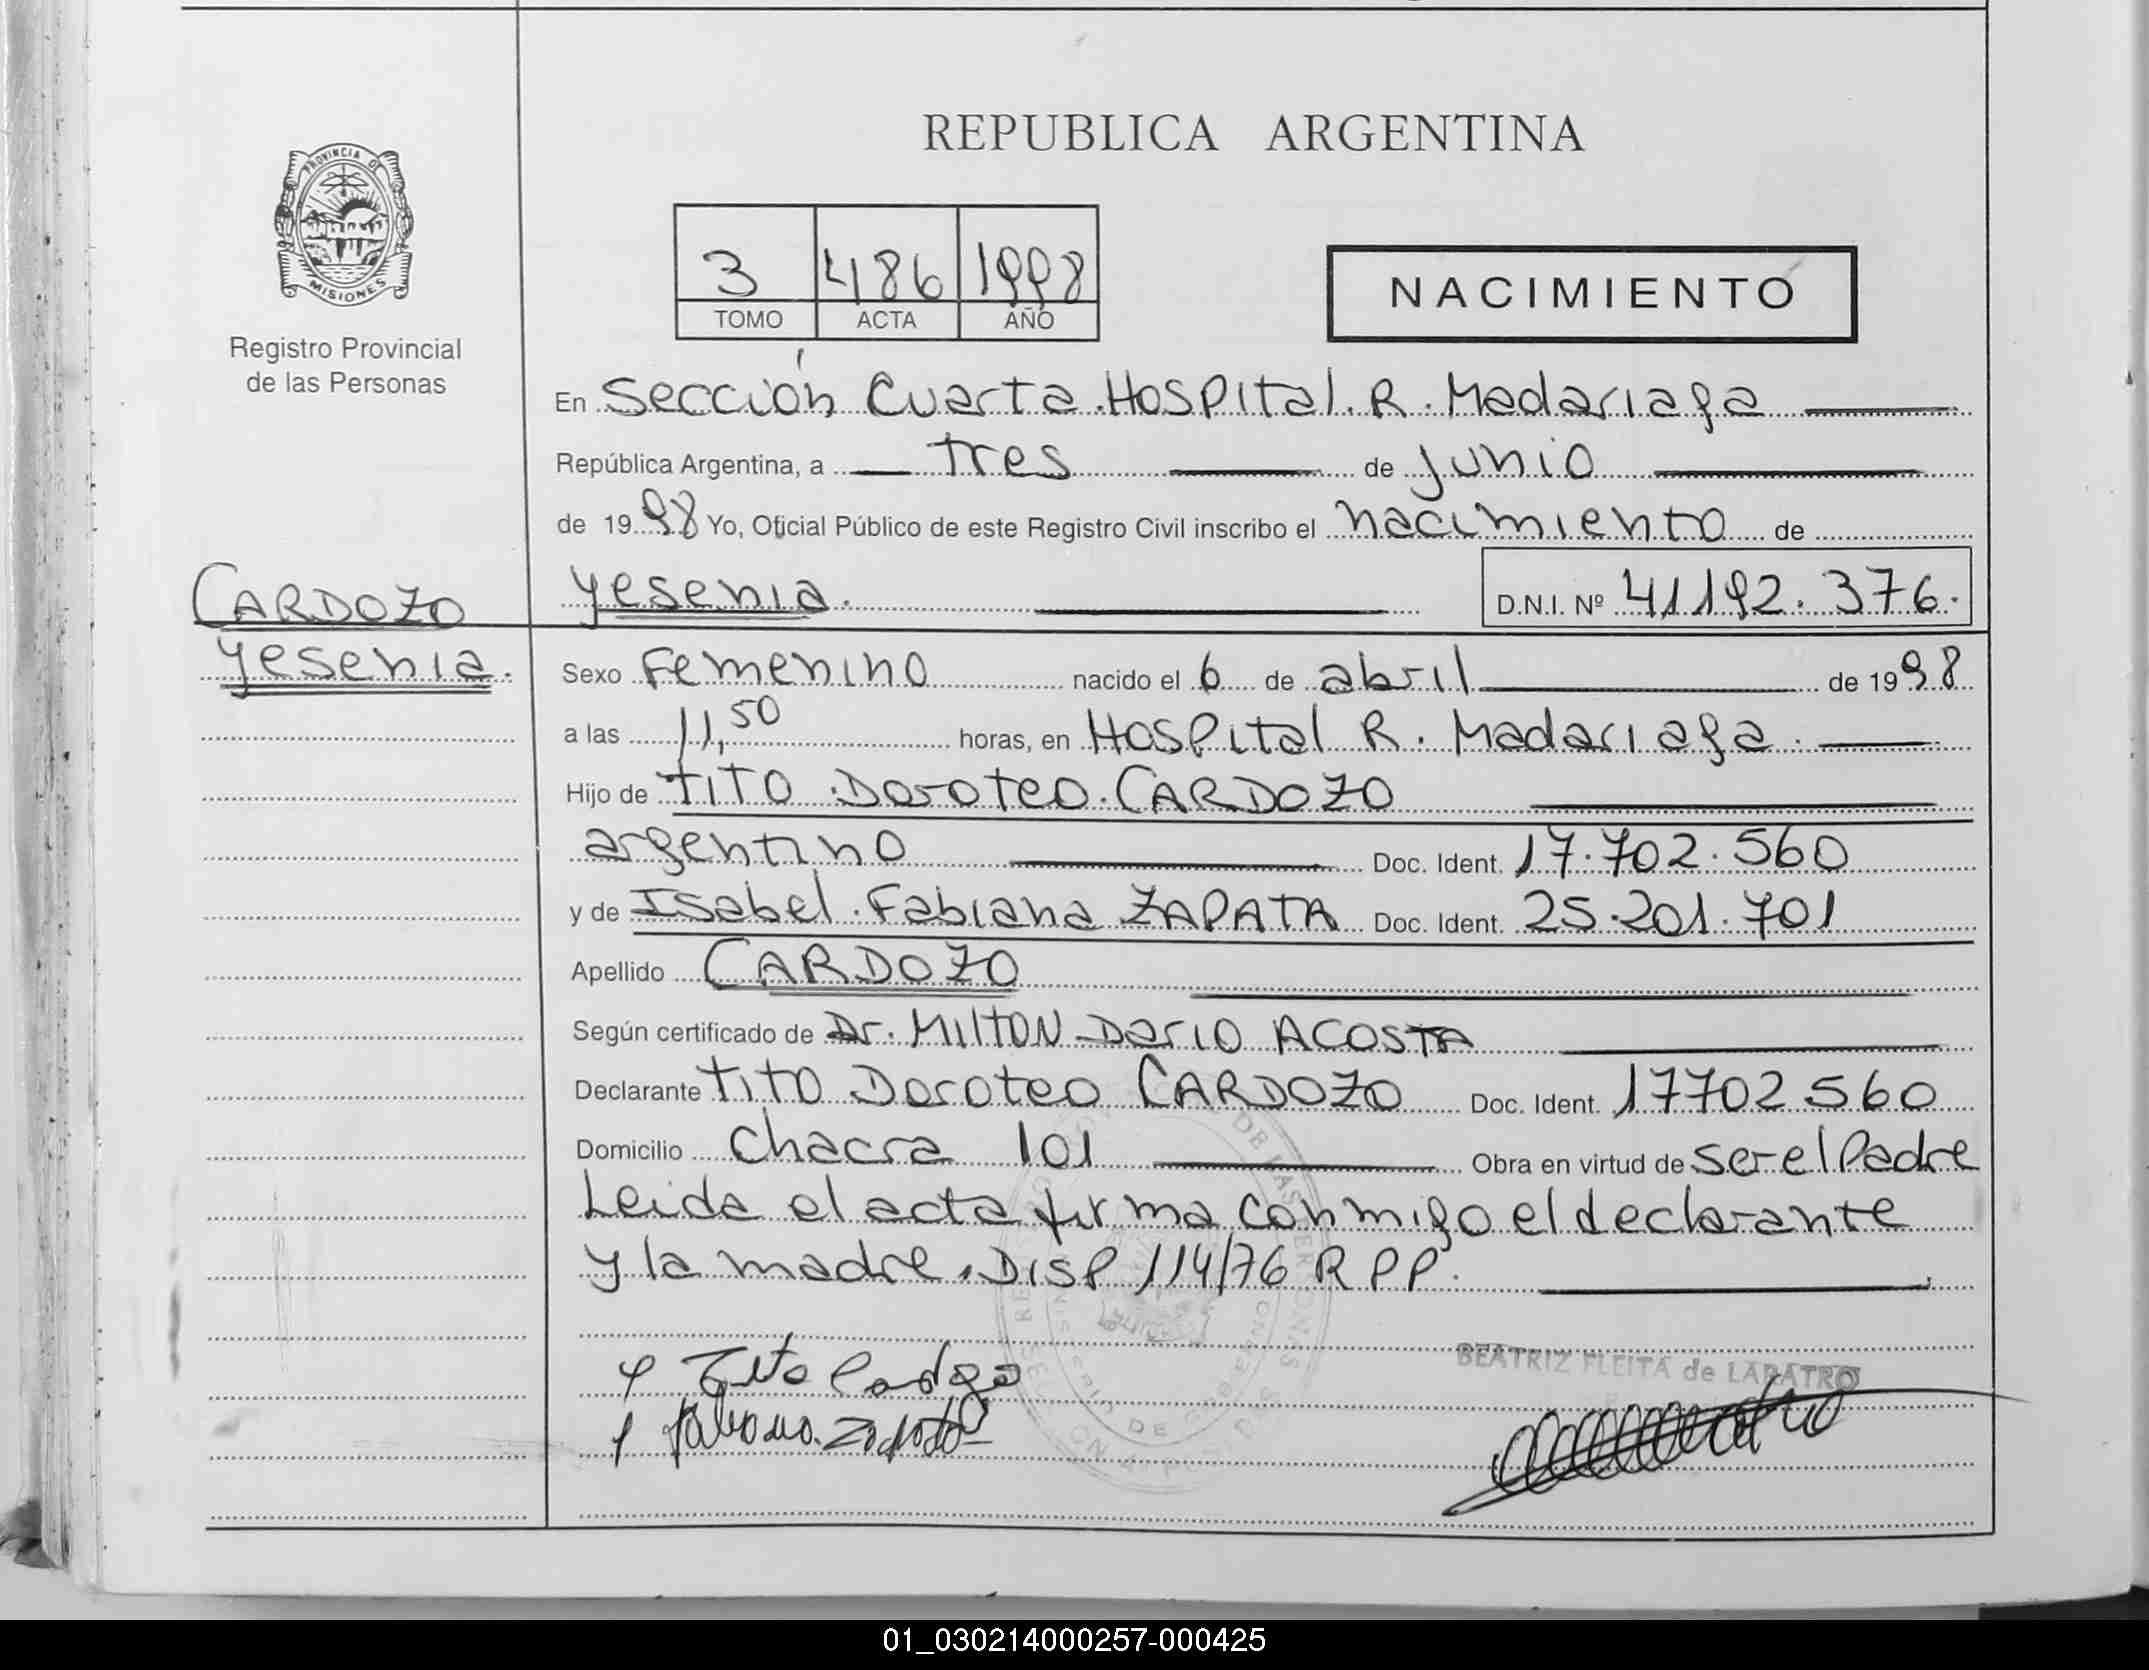 REPUBLICA ARGENTINA
PROVINCIA DE
MISIONES
Registro Provincial
de las Personas
3 486 1998
TOMO ACTA AÑO
NACIMIENTO
En Sección Cuarta Hospital R. Madariaga
República Argentina, a tres de junio
de 1998 Yo, Oficial Público de este Registro Civil inscribo el nacimiento de
CARDOZO
yesenia.
yesenia. D.N.I. Nº 41192.376.
Sexo Femenino nacido el 6 de abril de 1998
a las 11,50 horas, en Hospital R. Madariaga.
Hijo de TITO Doroteo CARDOZO
argentino Doc. Ident. 17.702.560
y de Isabel Fabiana ZAPATA Doc. Ident. 25.201.701
Apellido CARDOZO
Según certificado de Dr. MILTON Dario ACOSTA
Declarante TITO Doroteo CARDOZO Doc. Ident. 17702560
Domicilio Chacra 101 Obra en virtud de ser el Padre
Leida el acta firma conmigo el declarante
y la madre. DISP 114/76 R P P.
BEATRIZ FLEITA de LABATRO
Tito Cardozo
Fabiana Zapata
01_030214000257-000425